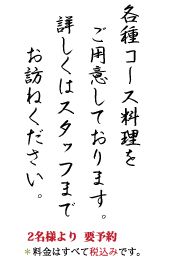 各種コース料理を
ご用意しております。
詳しくはスタッフまで
お訪ねください。
2名様より 要予約
＊料金はすべて税込みです。